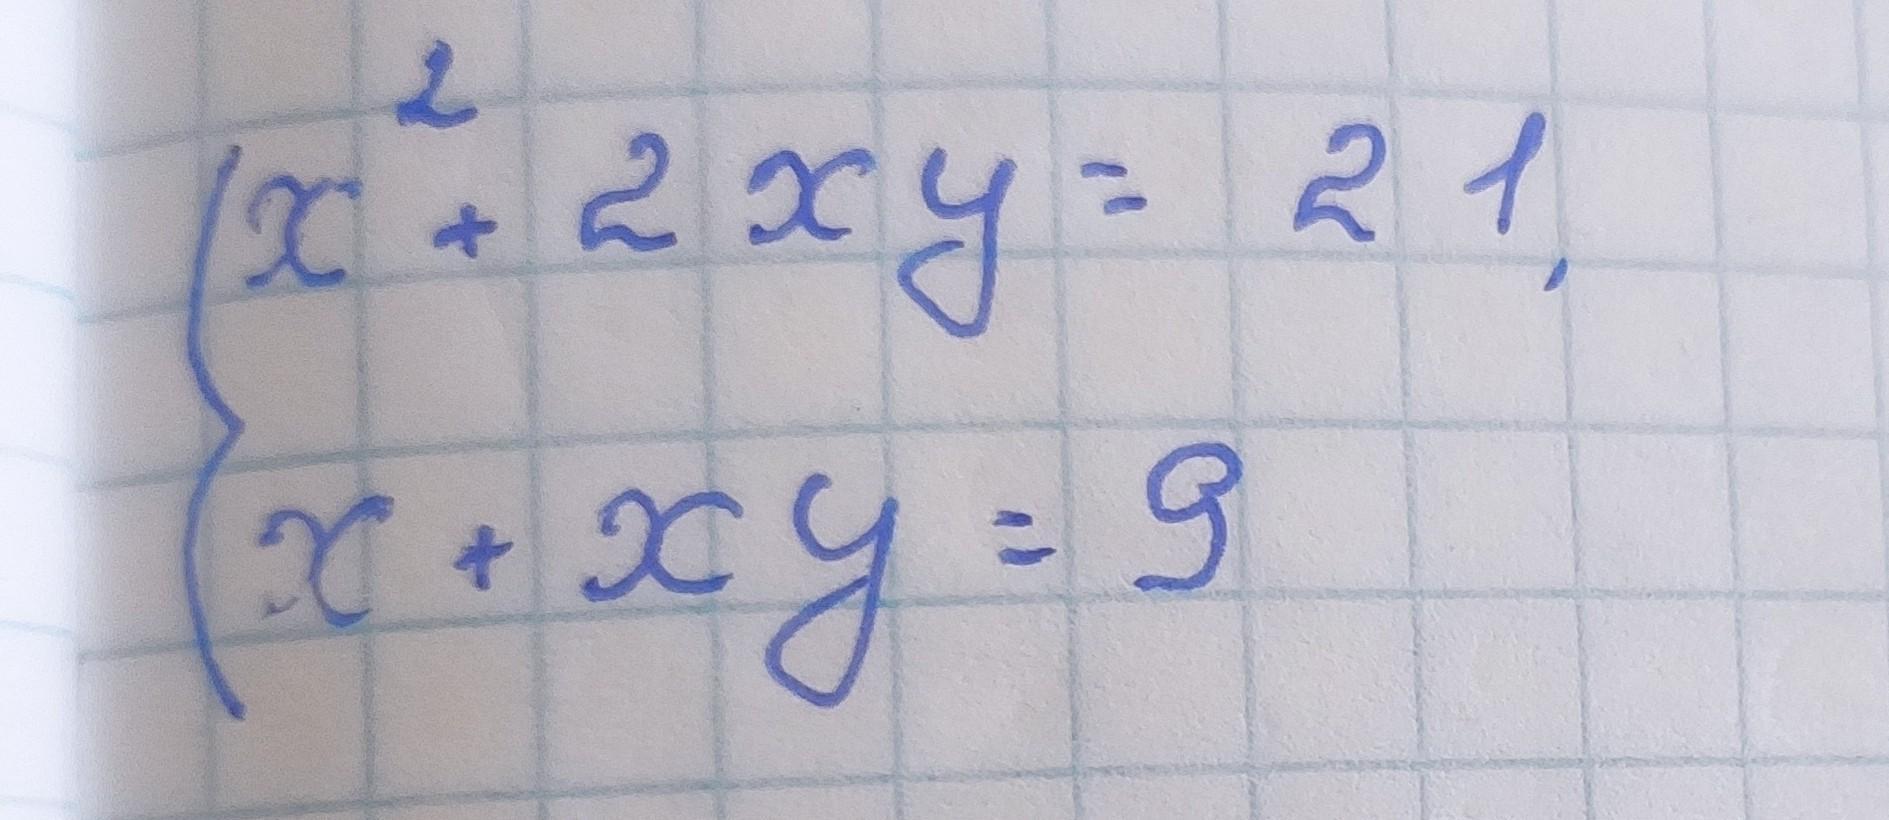 x² + 2xy = 21,
x + xy = 9